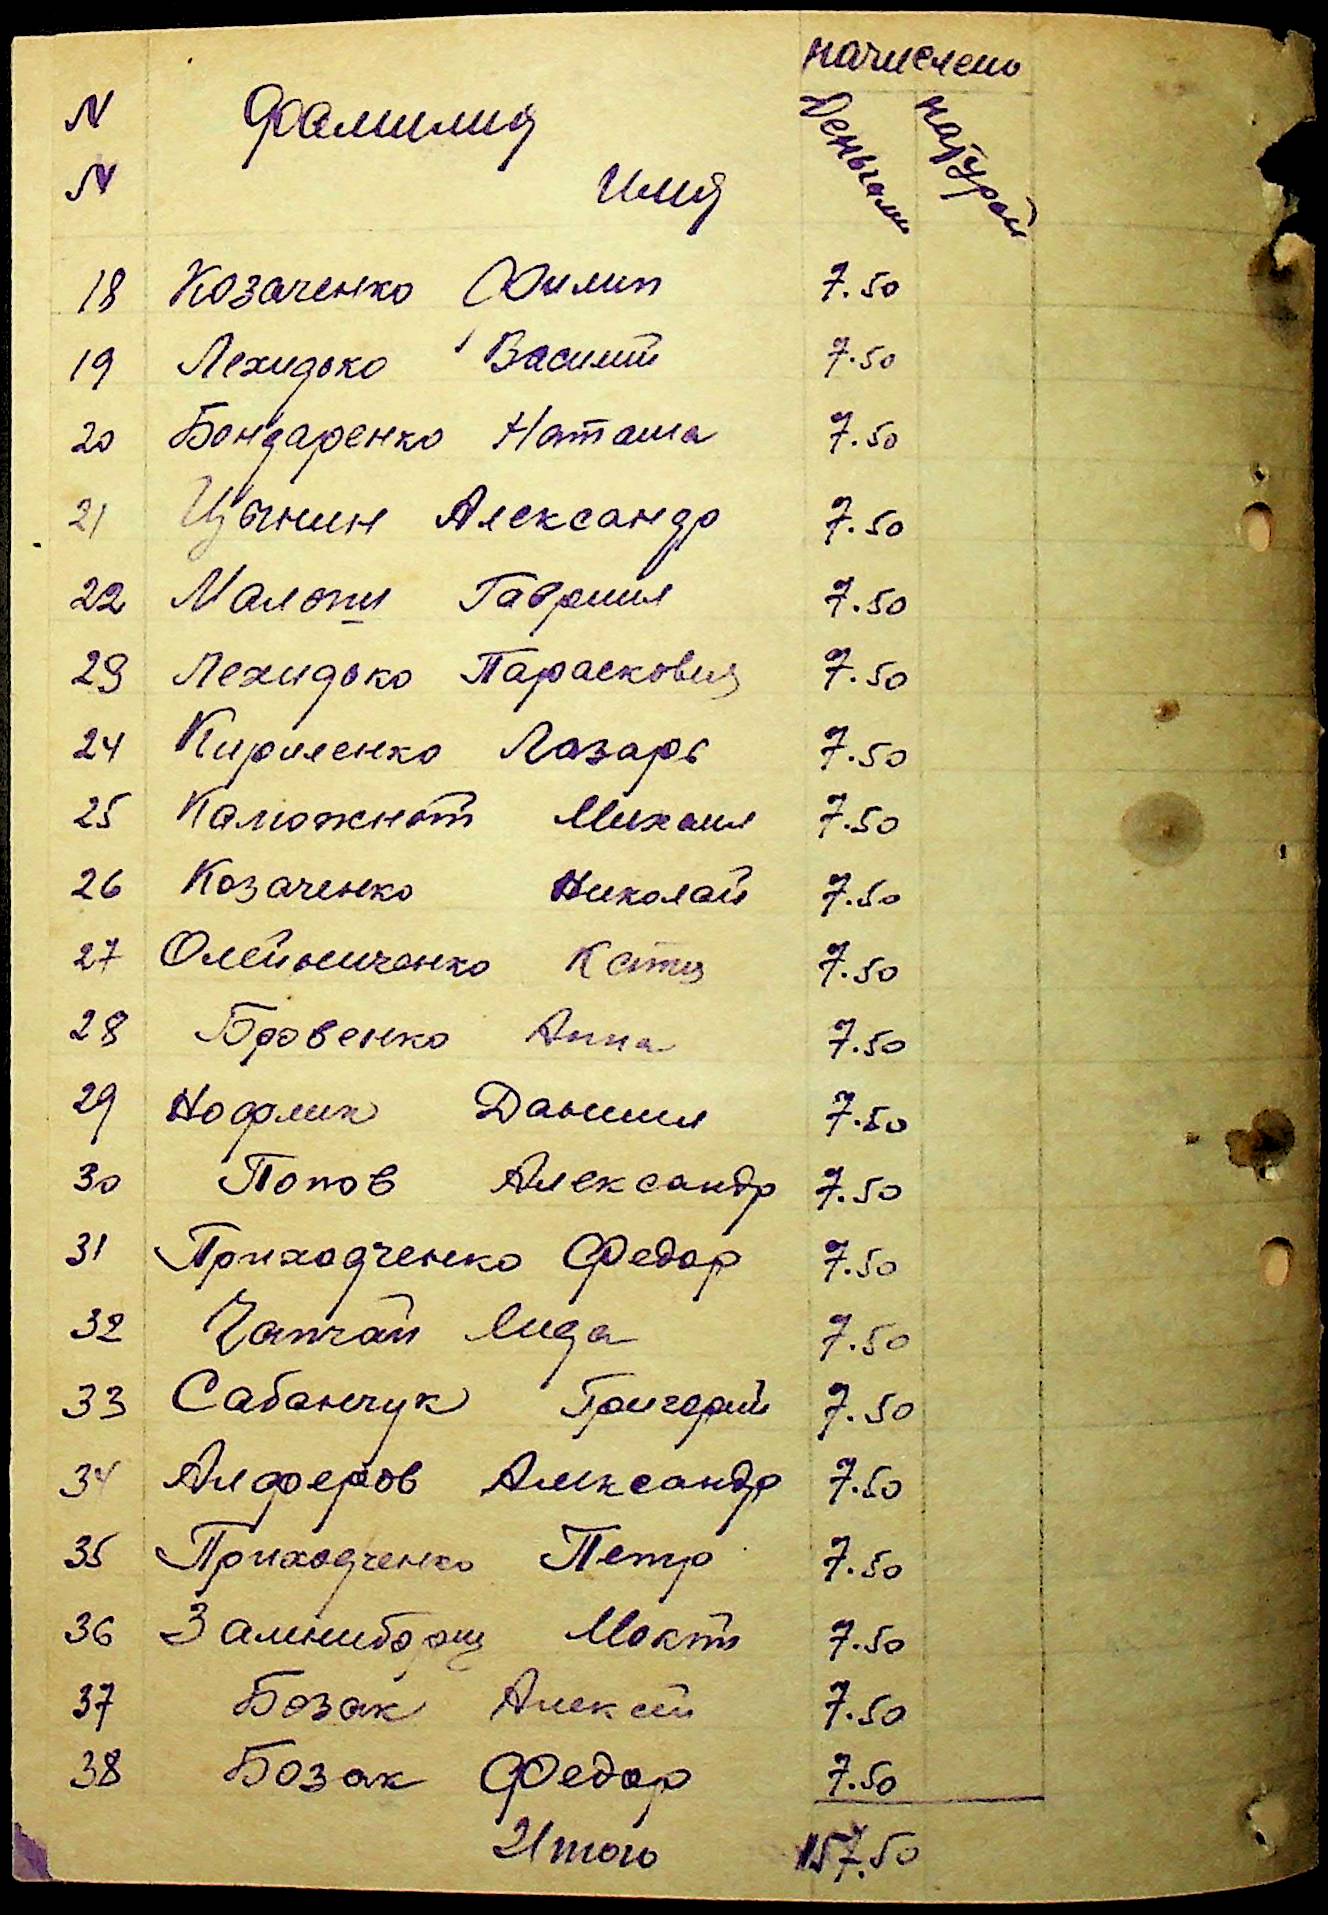 начислено
N Фамилия Деньгами натурой
N Имя
18 Козаченко Филип 7.50
19 Лехидько Василий 7.50
20 Бондаренко Наташа 7.50
21 Цынин Александр 7.50
22 Малопи Гавриил 7.50
23 Лехидько Парасковия 7.50
24 Кириленко Лазарь 7.50
25 Михаил 7.50
26 Козаченко Николай 7.50
27 Олейниченко Катя 7.50
28 Бровенко Анна 7.50
29 Даниил 7.50
30 Попов Александр 7.50
31 Приходченко Федор 7.50
32 Чапчай Лида 7.50
33 Сабанчук Григорий 7.50
34 Алферов Александр 7.50
35 Приходченко Петр 7.50
36 7.50
37 Бозак Алексей 7.50
38 Бозак Федор 7.50
Итого 157.50